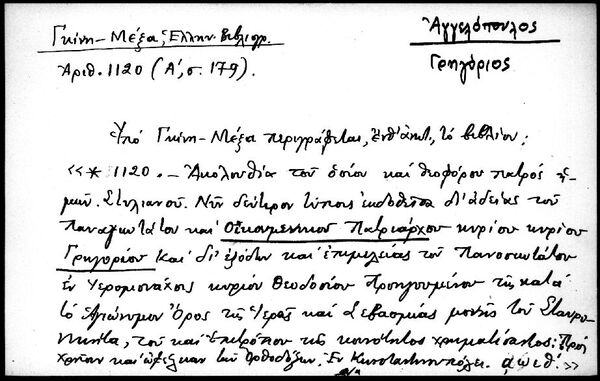 Γκίνη-Μέξα, Ἑλλην. Βιβλιογρ.
Ἀγγελόπουλος
Γρηγόριος
Ἀριθ. 1120 (Α', σ. 179).
Ὑπό Γκίνη-Μέξα περιγράφεται, ἐνθ' ἀνωτ., τό βιβλίον:
«* 1120. - Ἀκολουθία τοῦ ὁσίου καί θεοφόρου πατρός ἡ-
μῶν Στυλιανοῦ. Νῦν δεύτερον τύποις ἐκδοθεῖσα δι' ἀδείας τοῦ
Παναγιωτάτου καί Οἰκουμενικοῦ Πατριάρχου κυρίου κυρίου
Γρηγορίου καί δι' ἐξόδων καί ἐπιμελείας τοῦ Πανοσιωτάτου
ἐν Ἱερομονάχοις κυρίου Θεοδοσίου Προηγουμένου τῆς κατά
τό Ἁγιώνυμον Ὄρος τῆς Ἱερᾶς καί Σεβασμίας μονῆς τοῦ Σταυρο-
νικήτα, τοῦ καί Ἐπιτρόπου τῆς κοινότητος χρηματίσαντος: Πρός
χρῆσιν καί ὠφέλειαν τῶν Ὀρθοδόξων. Ἐν Κωνσταντινουπόλει. αωιθ'.»